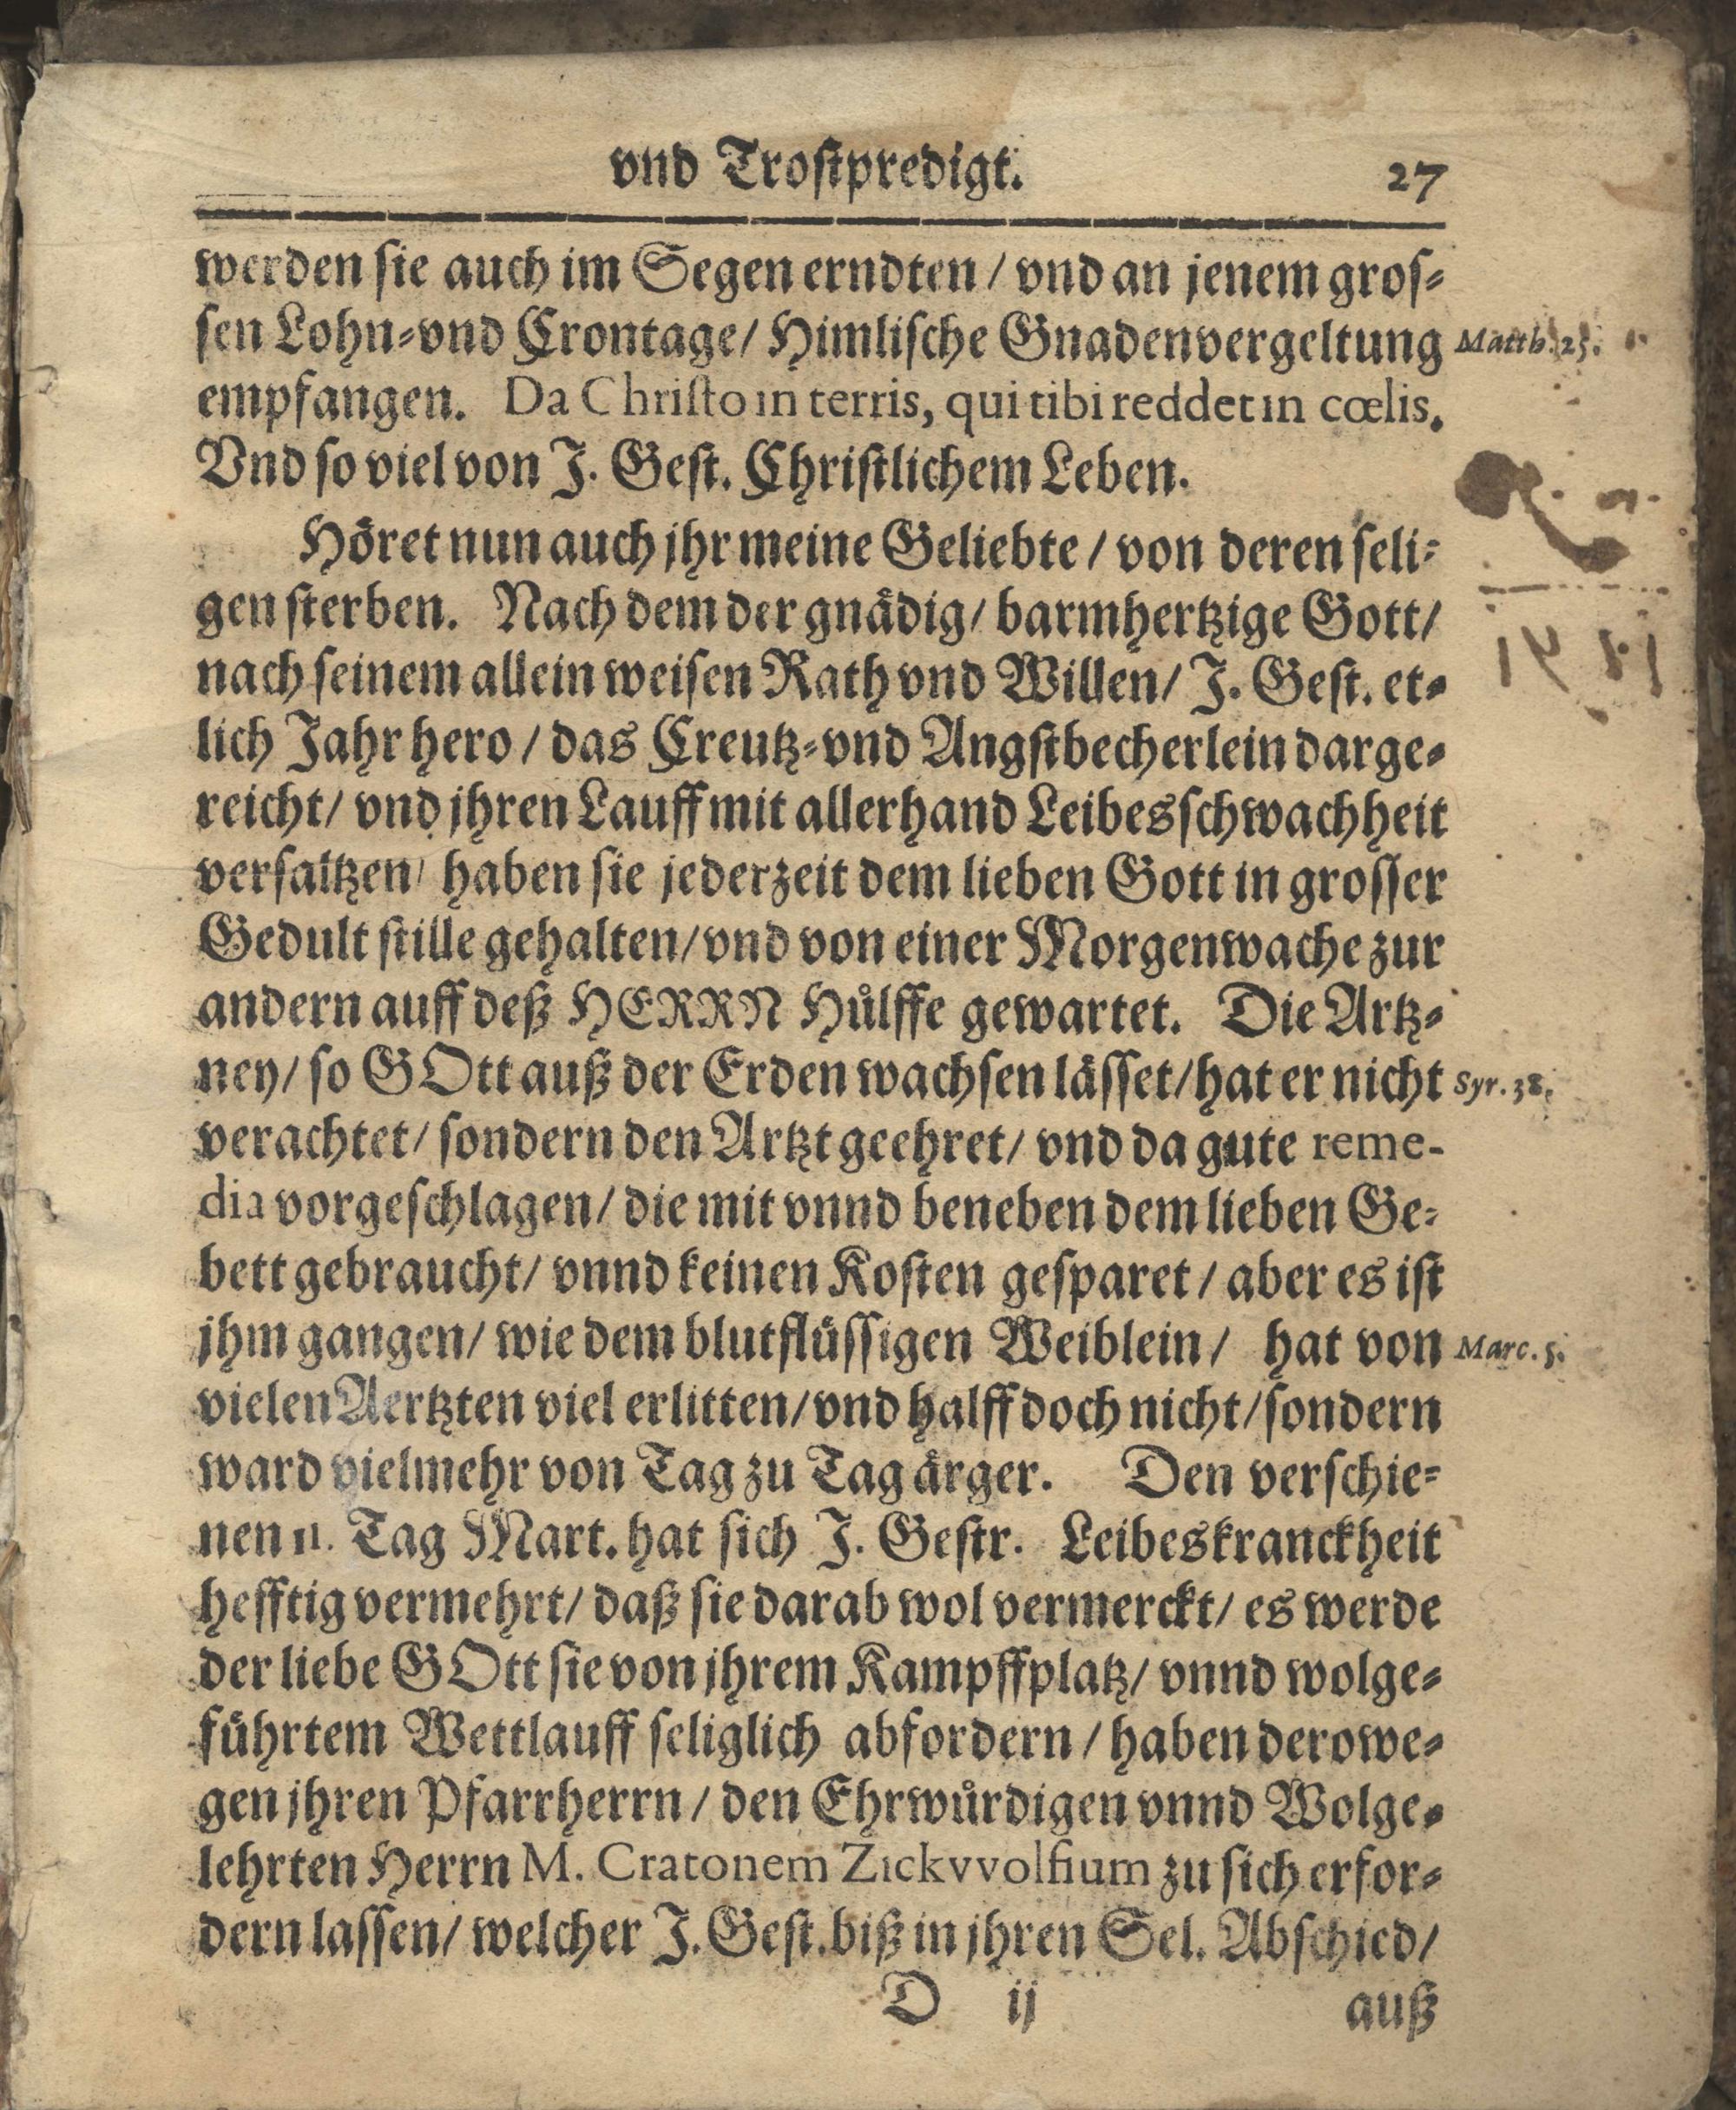 vnd Troſtpredigt. 27
werden ſie auch im Segen erndten / vnd an jenem groſ⸗
ſen Lohn⸗vnd Crontage/ Himliſche Gnadenvergeltung Matth. 25.
empfangen. Da Chriſto in terris, qui tibi reddet in cœlis.
Vnd ſo viel von J. Geſt. Chriſtlichem Leben.
Hoͤret nun auch jhr meine Geliebte / von deren ſeli⸗
gen ſterben. Nach dem der gnaͤdig/ barmhertzige Gott/
nach ſeinem allein weiſen Rath vnd Willen/ J. Geſt. et⸗
lich Jahr hero / das Creutz⸗vnd Angſtbecherlein darge⸗
reicht/ vnd jhren Lauff mit allerhand Leibesſchwachheit
verſaltzen/ haben ſie jederzeit dem lieben Gott in groſſer
Gedult ſtille gehalten/ vnd von einer Morgenwache zur
andern auff deß HERRN Huͤlffe gewartet. Die Artz⸗
ney/ ſo GOtt auß der Erden wachſen laͤſſet/ hat er nicht Syr. 38.
verachtet/ ſondern den Artzt geehret/ vnd da gute reme-
dia vorgeſchlagen/ die mit vnnd beneben dem lieben Ge⸗
bett gebraucht/ vnnd keinen Koſten geſparet / aber es iſt
jhm gangen/ wie dem blutfluͤſſigen Weiblein / hat von Marc. 5.
vielen Aertzten viel erlitten/ vnd halff doch nicht/ ſondern
ward vielmehr von Tag zu Tag aͤrger. Den verſchie⸗
nen 11. Tag Mart. hat ſich J. Geſtr. Leibeskranckheit
hefftig vermehrt/ daß ſie darab wol vermerckt/ es werde
der liebe GOtt ſie von jhrem Kampffplatz/ vnnd wolge⸗
fuͤhrtem Wettlauff ſeliglich abfordern / haben derowe⸗
gen jhren Pfarrherrn / den Ehrwuͤrdigen vnnd Wolge⸗
lehrten Herrn M. Cratonem Zickvvolfium zu ſich erfor⸗
dern laſſen/ welcher J. Geſt. biß in jhren Sel. Abſchied/
D ij auß